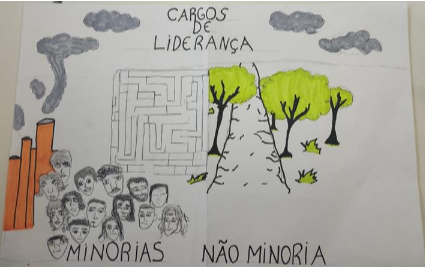 CARGOS
DE
LIDERANÇA
MINORIAS NÃO MINORIA